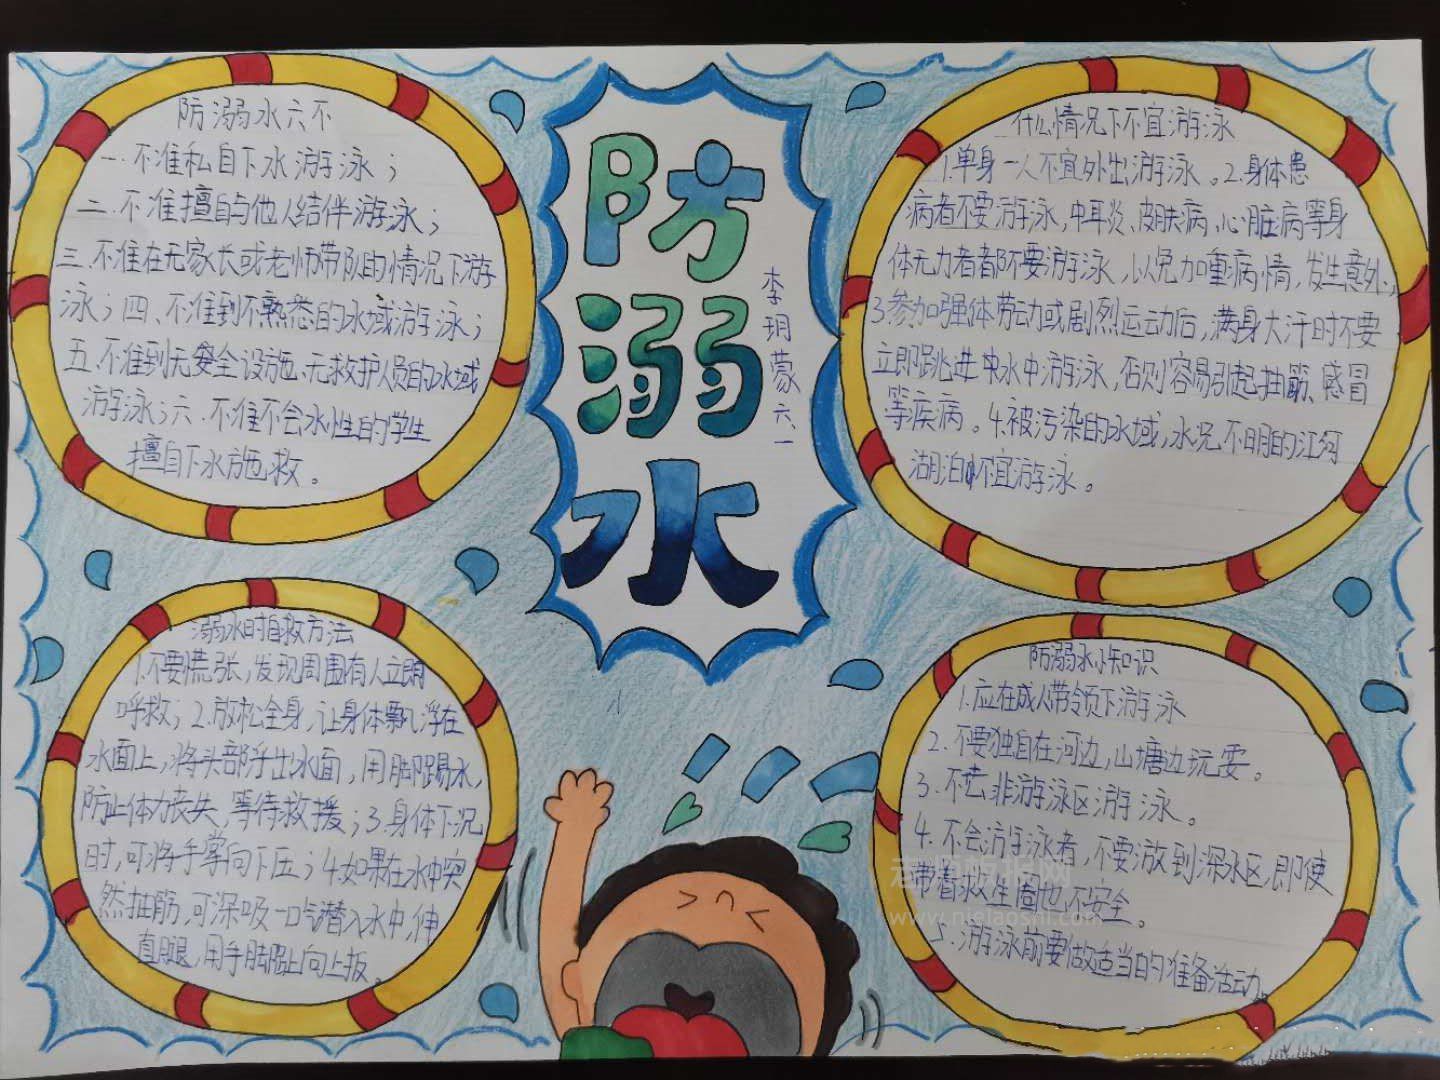 防溺水六不
一.不准私自下水游泳；
二.不准擅自与他人结伴游泳；
三.不准在无家长或老师带队的情况下游
泳；四、不准到不熟悉的水域游泳；
五.不准到无安全设施、无救护人员的水域
游泳；六.不准不会水性的学生
擅自下水施救。
防
溺
水
李玥蒙 六.一
什么情况下不宜游泳
1.单身一人不宜外出游泳。2.身体患
病者不要游泳,中耳炎、皮肤病、心脏病等身
体无力者都不要游泳,以免加重病情,发生意外.
3.参加强体劳动或剧烈运动后,满身大汗时不要
立即跳进水中游泳,否则容易引起抽筋、感冒
等疾病。4.被污染的水域,水况不明的江河
湖泊不宜游泳。
溺水时自救方法
1.不要慌张,发现周围有人立即
呼救；2.放松全身,让身体飘浮在
水面上,将头部浮出水面,用脚踢水,
防止体力丧失,等待救援；3.身体下沉
时,可将手掌向下压；4.如果在水中突
然抽筋,可深吸一口气潜入水中,伸
直腿,用手脚趾向上扳。
防溺水小知识
1.应在成人带领下游泳
2.不要独自在河边,山塘边玩耍。
3.不去非游泳区游泳。
4.不会游泳者,不要游到深水区,即使
带着救生圈也不安全。
5.游泳前要做适当的准备活动。
www.nielaoshi.com